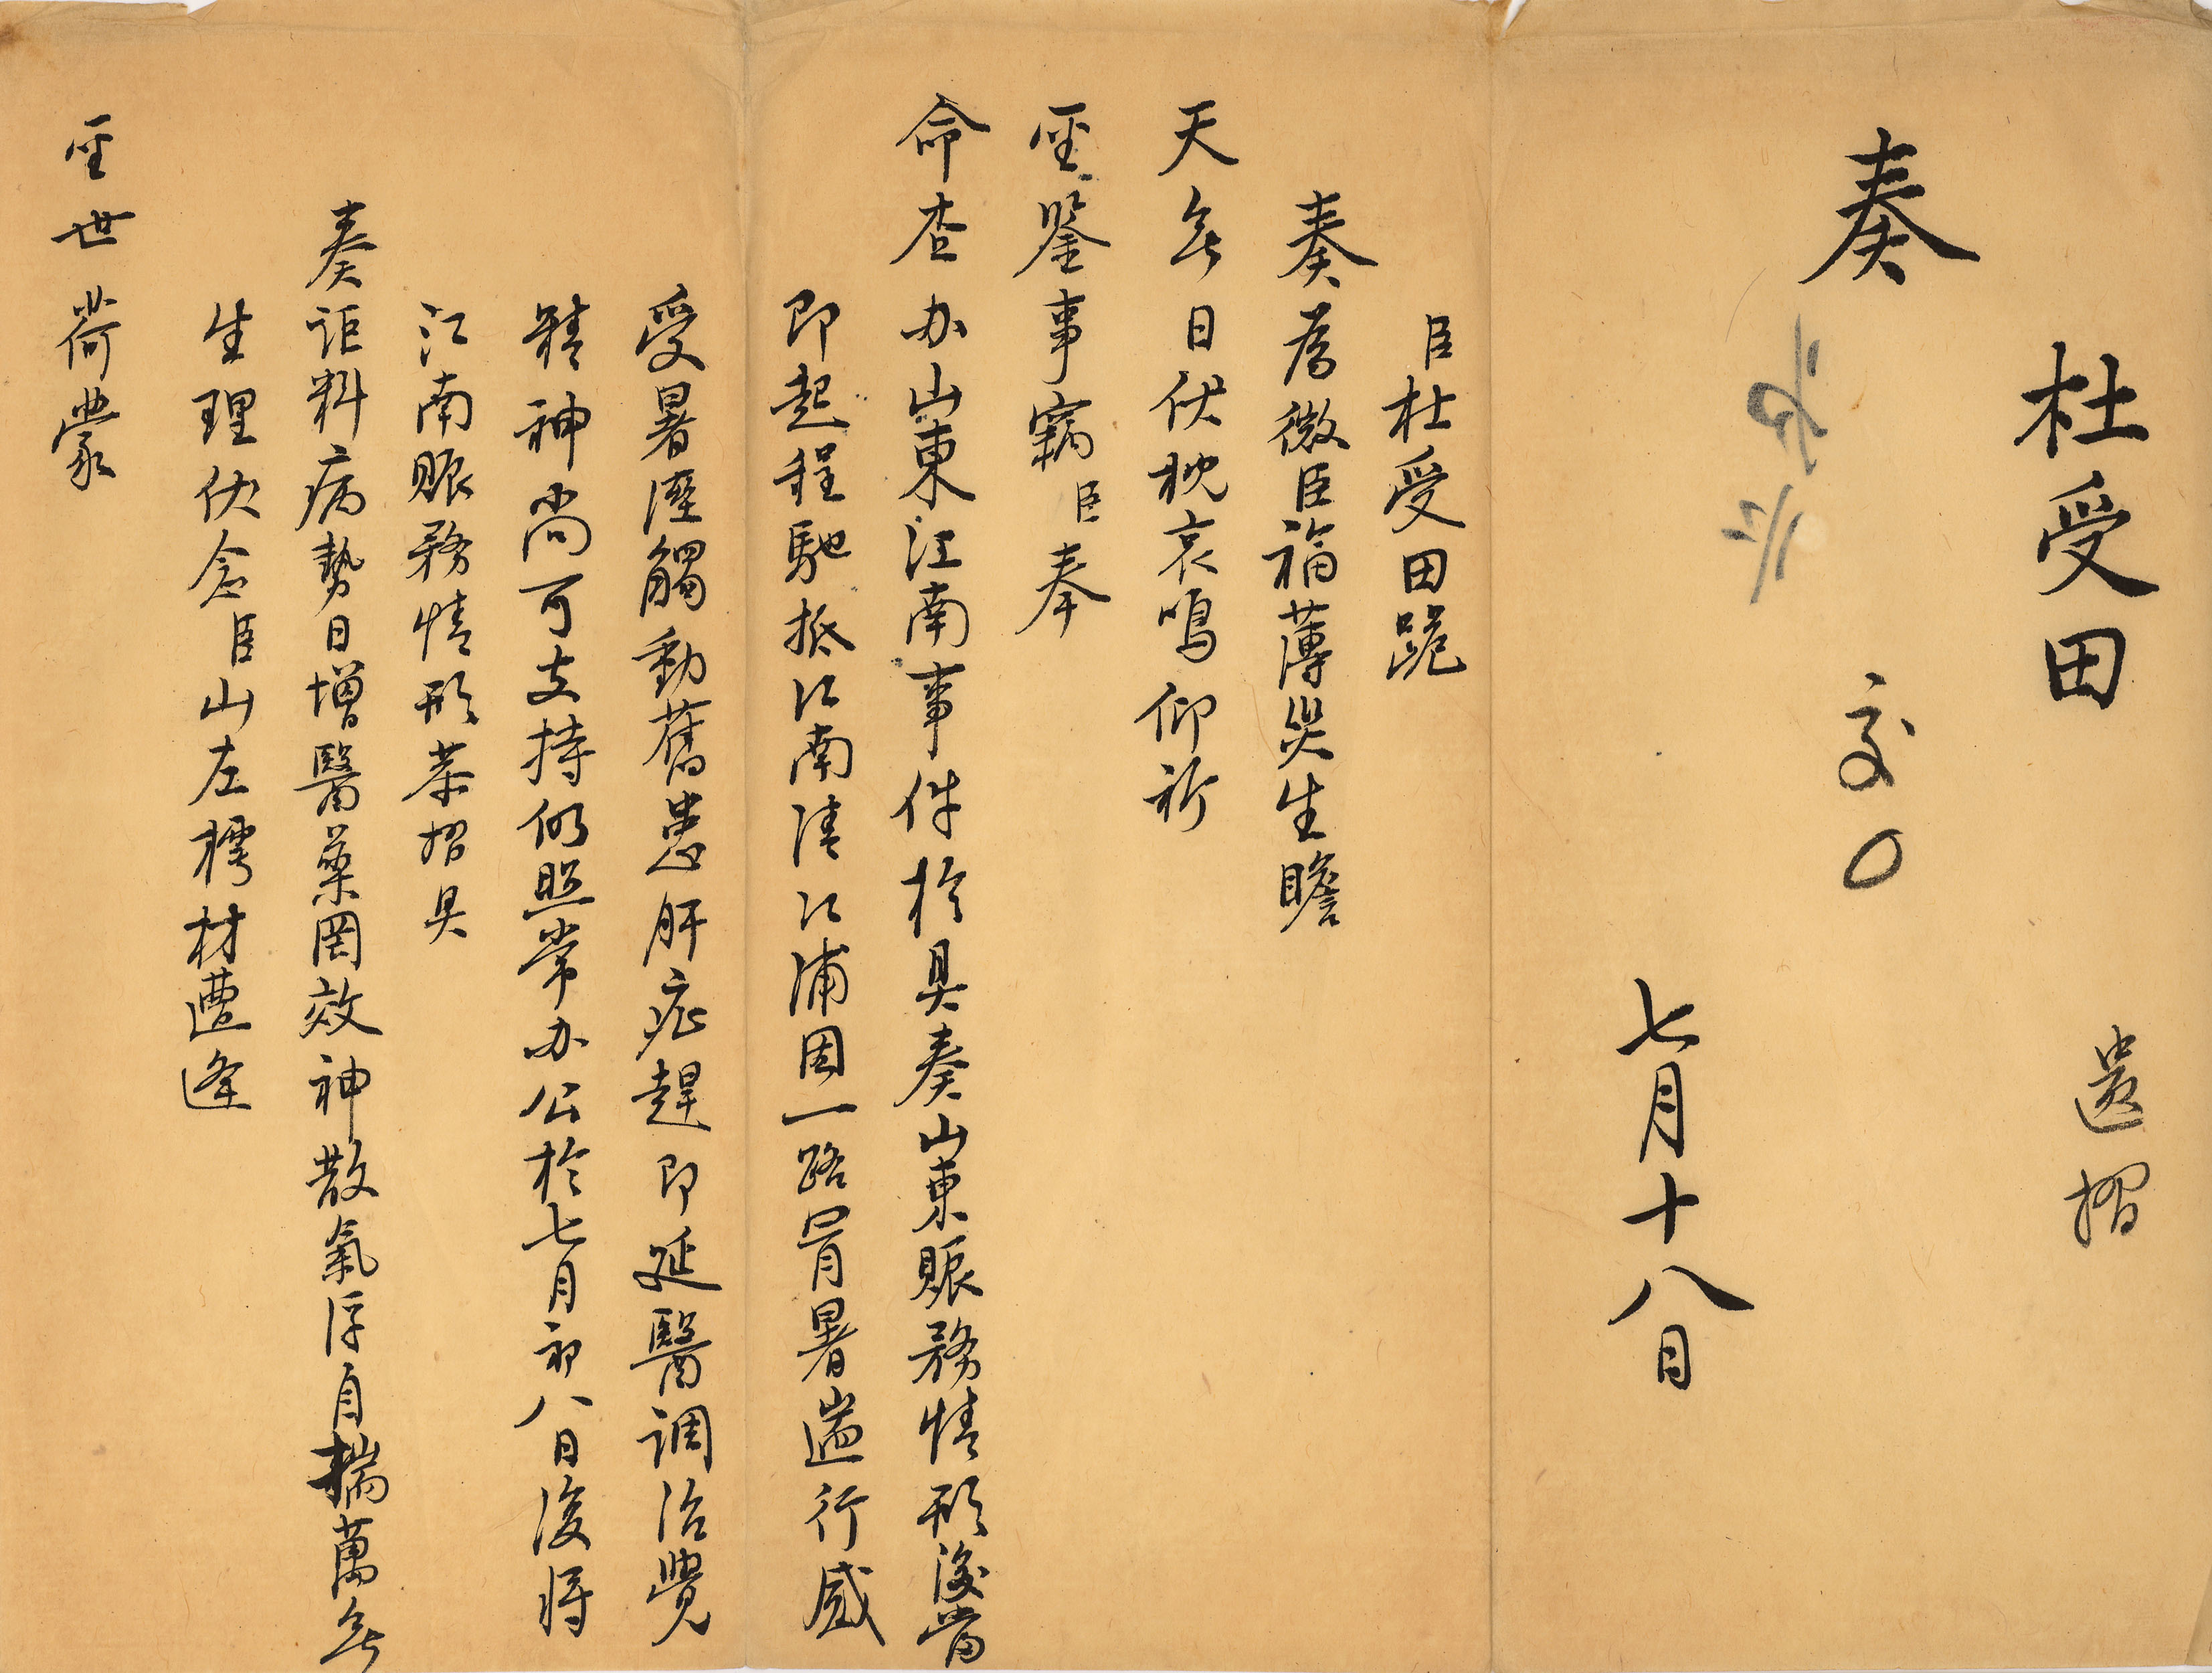 杜受田 遺摺
奏
交
七月十八日
臣杜受田跪
奏為微臣福薄災生瞻
天無日伏枕哀鳴仰祈
聖鑒事竊臣奉
命查办山東江南事件於具奏山東賑務情形後當
即起程馳抵江南清江浦因一路冒暑遄行感
受暑溼觸動舊患肝症趕即延醫調治覺
精神尚可支持仍照常办公於七月初八日後將
江南賑務情形恭摺具
奏詎料病勢日增醫藥罔效神散氣浮自揣萬無
生理伏念臣山左樗材遭逢
聖世荷蒙